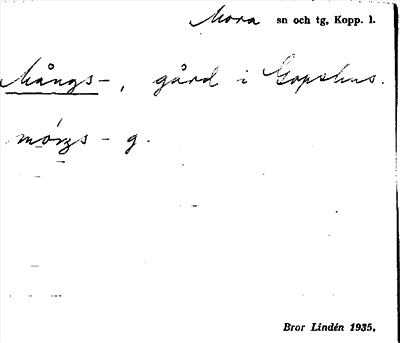 Mora sn och tg, Kopp. l.
Mångs-, gård i Gopshus.
- g.
Bror Lindén 1935.